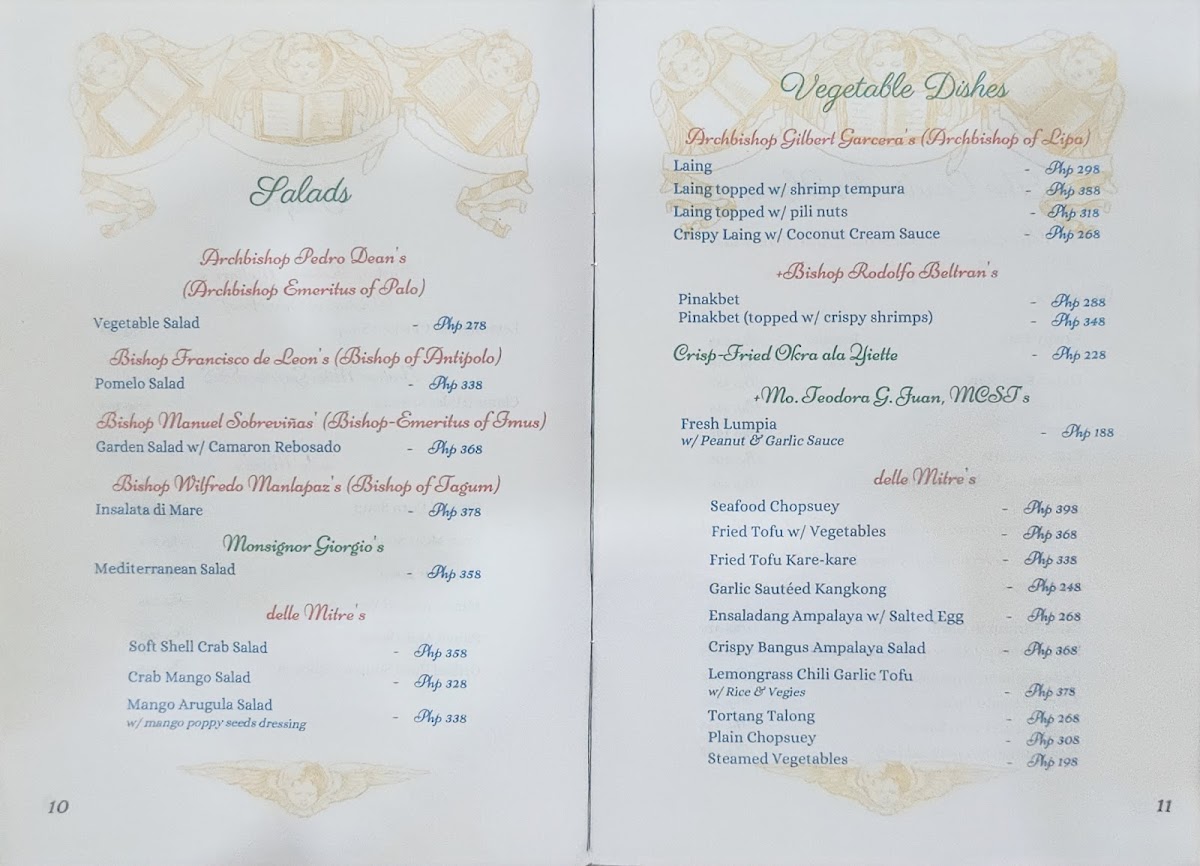 Salads
Archbishop Pedro Dean's
(Archbishop Emeritus of Palo)
Vegetable Salad - Php 278
Bishop Francisco de Leon's (Bishop of Antipolo)
Pomelo Salad - Php 338
Bishop Manuel Sobreviñas' (Bishop-Emeritus of Imus)
Garden Salad w/ Camaron Rebosado - Php 368
Bishop Wilfredo Manlapaz's (Bishop of Tagum)
Insalata di Mare - Php 378
Monsignor Giorgio's
Mediterranean Salad - Php 358
delle Mitre's
Soft Shell Crab Salad - Php 358
Crab Mango Salad - Php 328
Mango Arugula Salad - Php 338
w/ mango poppy seeds dressing
10
Vegetable Dishes
Archbishop Gilbert Garcera's (Archbishop of Lipa)
Laing - Php 298
Laing topped w/ shrimp tempura - Php 388
Laing topped w/ pili nuts - Php 318
Crispy Laing w/ Coconut Cream Sauce - Php 268
+Bishop Rodolfo Beltran's
Pinakbet - Php 288
Pinakbet (topped w/ crispy shrimps) - Php 348
Crisp-Fried Okra ala Yiette - Php 228
+Mo. Teodora G. Juan, MCST's
Fresh Lumpia - Php 188
w/ Peanut & Garlic Sauce
delle Mitre's
Seafood Chopsuey - Php 398
Fried Tofu w/ Vegetables - Php 368
Fried Tofu Kare-kare - Php 338
Garlic Sautéed Kangkong - Php 248
Ensaladang Ampalaya w/ Salted Egg - Php 268
Crispy Bangus Ampalaya Salad - Php 368
Lemongrass Chili Garlic Tofu
w/ Rice & Vegies - Php 378
Tortang Talong - Php 268
Plain Chopsuey - Php 308
Steamed Vegetables - Php 198
11